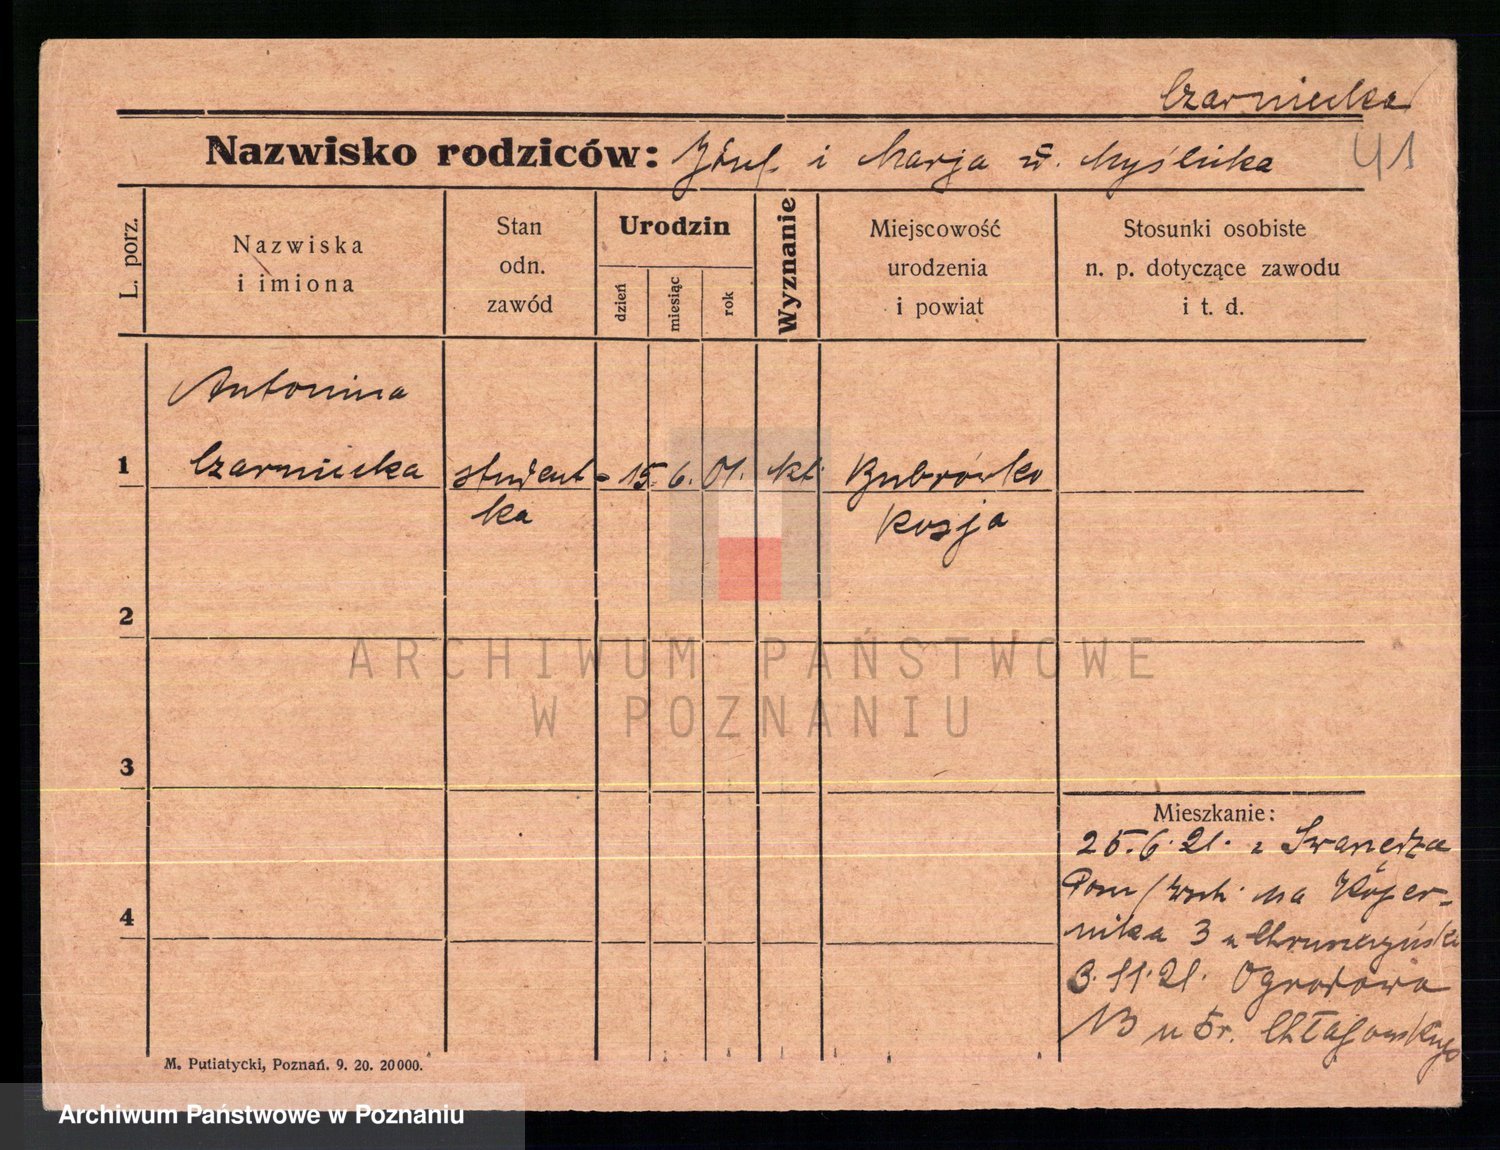 Czarniecka
Nazwisko rodziców: Józef i Marja ż. Myślicka
41
L. porz.
Nazwiska
i imiona
Stan
odn.
zawód
Urodzin
dzień
miesiąc
rok
Wyznanie
Miejscowość
urodzenia
i powiat
Stosunki osobiste
n. p. dotyczące zawodu
i t. d.
Antonina
1 Czarniecka student- 15. 6. 01. kt. Bubrówko
ka Rosja
2
ARCHIWUM PAŃSTWOWE
W POZNANIU
3
Mieszkanie:
25.6.21. z Swarzędza
Pozn/wsch. na Koper-
4
nika 3 u
3.11.21. Ogrodowa
13 u Chłapowskiego
M. Putiatycki, Poznań. 9. 20. 20000.
Archiwum Państwowe w Poznaniu